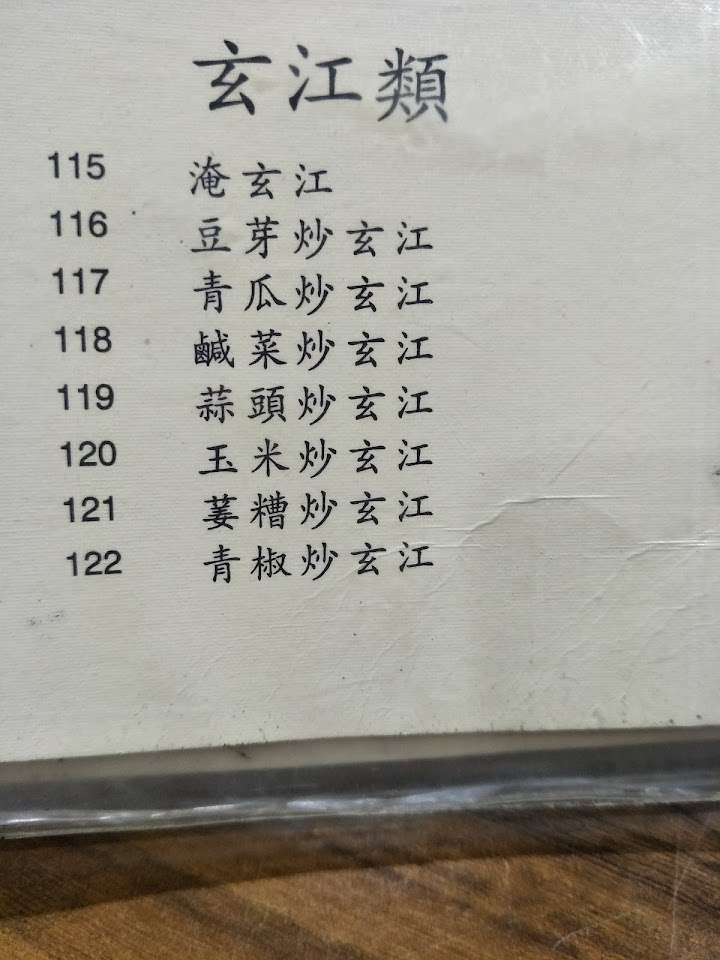 玄江類
115 淹玄江
116 豆芽炒玄江
117 青瓜炒玄江
118 鹹菜炒玄江
119 蒜頭炒玄江
120 玉米炒玄江
121 蔞糟炒玄江
122 青椒炒玄江